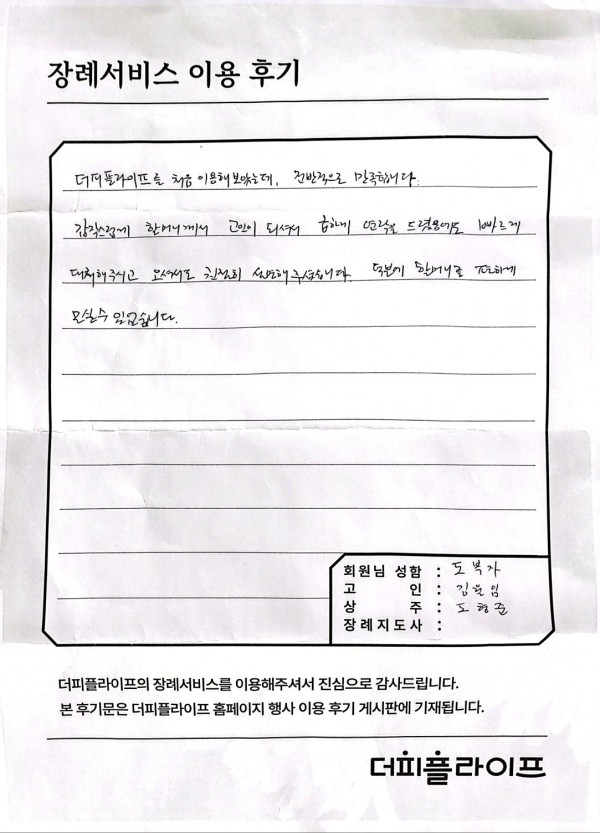 장례서비스 이용 후기
더피플라이프를 처음 이용해보았는데, 전반적으로 만족합니다.
갑작스럽게 할머니께서 고인이 되셔서 급하게 연락을 드렸음에도 빠르게
대처해주시고 오셔서도 친절히 설명해주셨습니다. 덕분에 할머니를 편하게
모실수 있었습니다.
회원님 성함 : 도복자
고 인 : 김윤임
상 주 : 도형준
장례지도사 :
더피플라이프의 장례서비스를 이용해주셔서 진심으로 감사드립니다.
본 후기문은 더피플라이프 홈페이지 행사 이용 후기 게시판에 기재됩니다.
더피플라이프